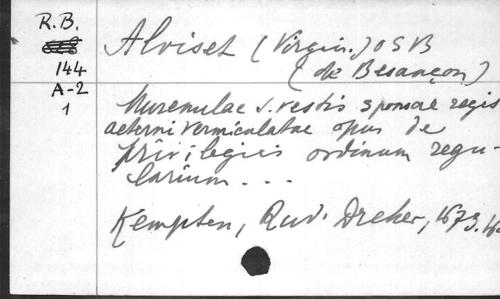 R.B.
144
A-2
1
Alviset (Virgin.) OSB
(de Besançon)
Murenulae s. vestis sponsae regis
aeterni vermiculatae opus de
privilegiis ordinum regu-
larium...
Kempten, Rud. Dreher, 1673.